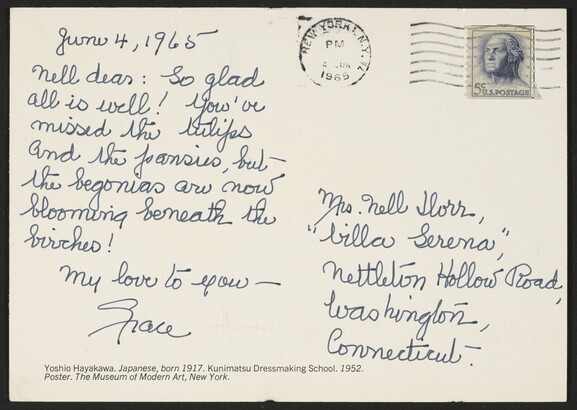 June 4, 1965
Nell dear: So glad
all is well! You've
missed the tulips
and the pansies, but
the begonias are now
blooming beneath the
birches!
My love to you —
Grace
NEW YORK, N.Y.
PM
4 JUN
1965
5¢
U.S. POSTAGE
Mrs. Nell Dorr,
"Villa Serena",
Nettleton Hollow Road,
Washington,
Connecticut.
Yoshio Hayakawa. Japanese, born 1917. Kunimatsu Dressmaking School. 1952.
Poster. The Museum of Modern Art, New York.